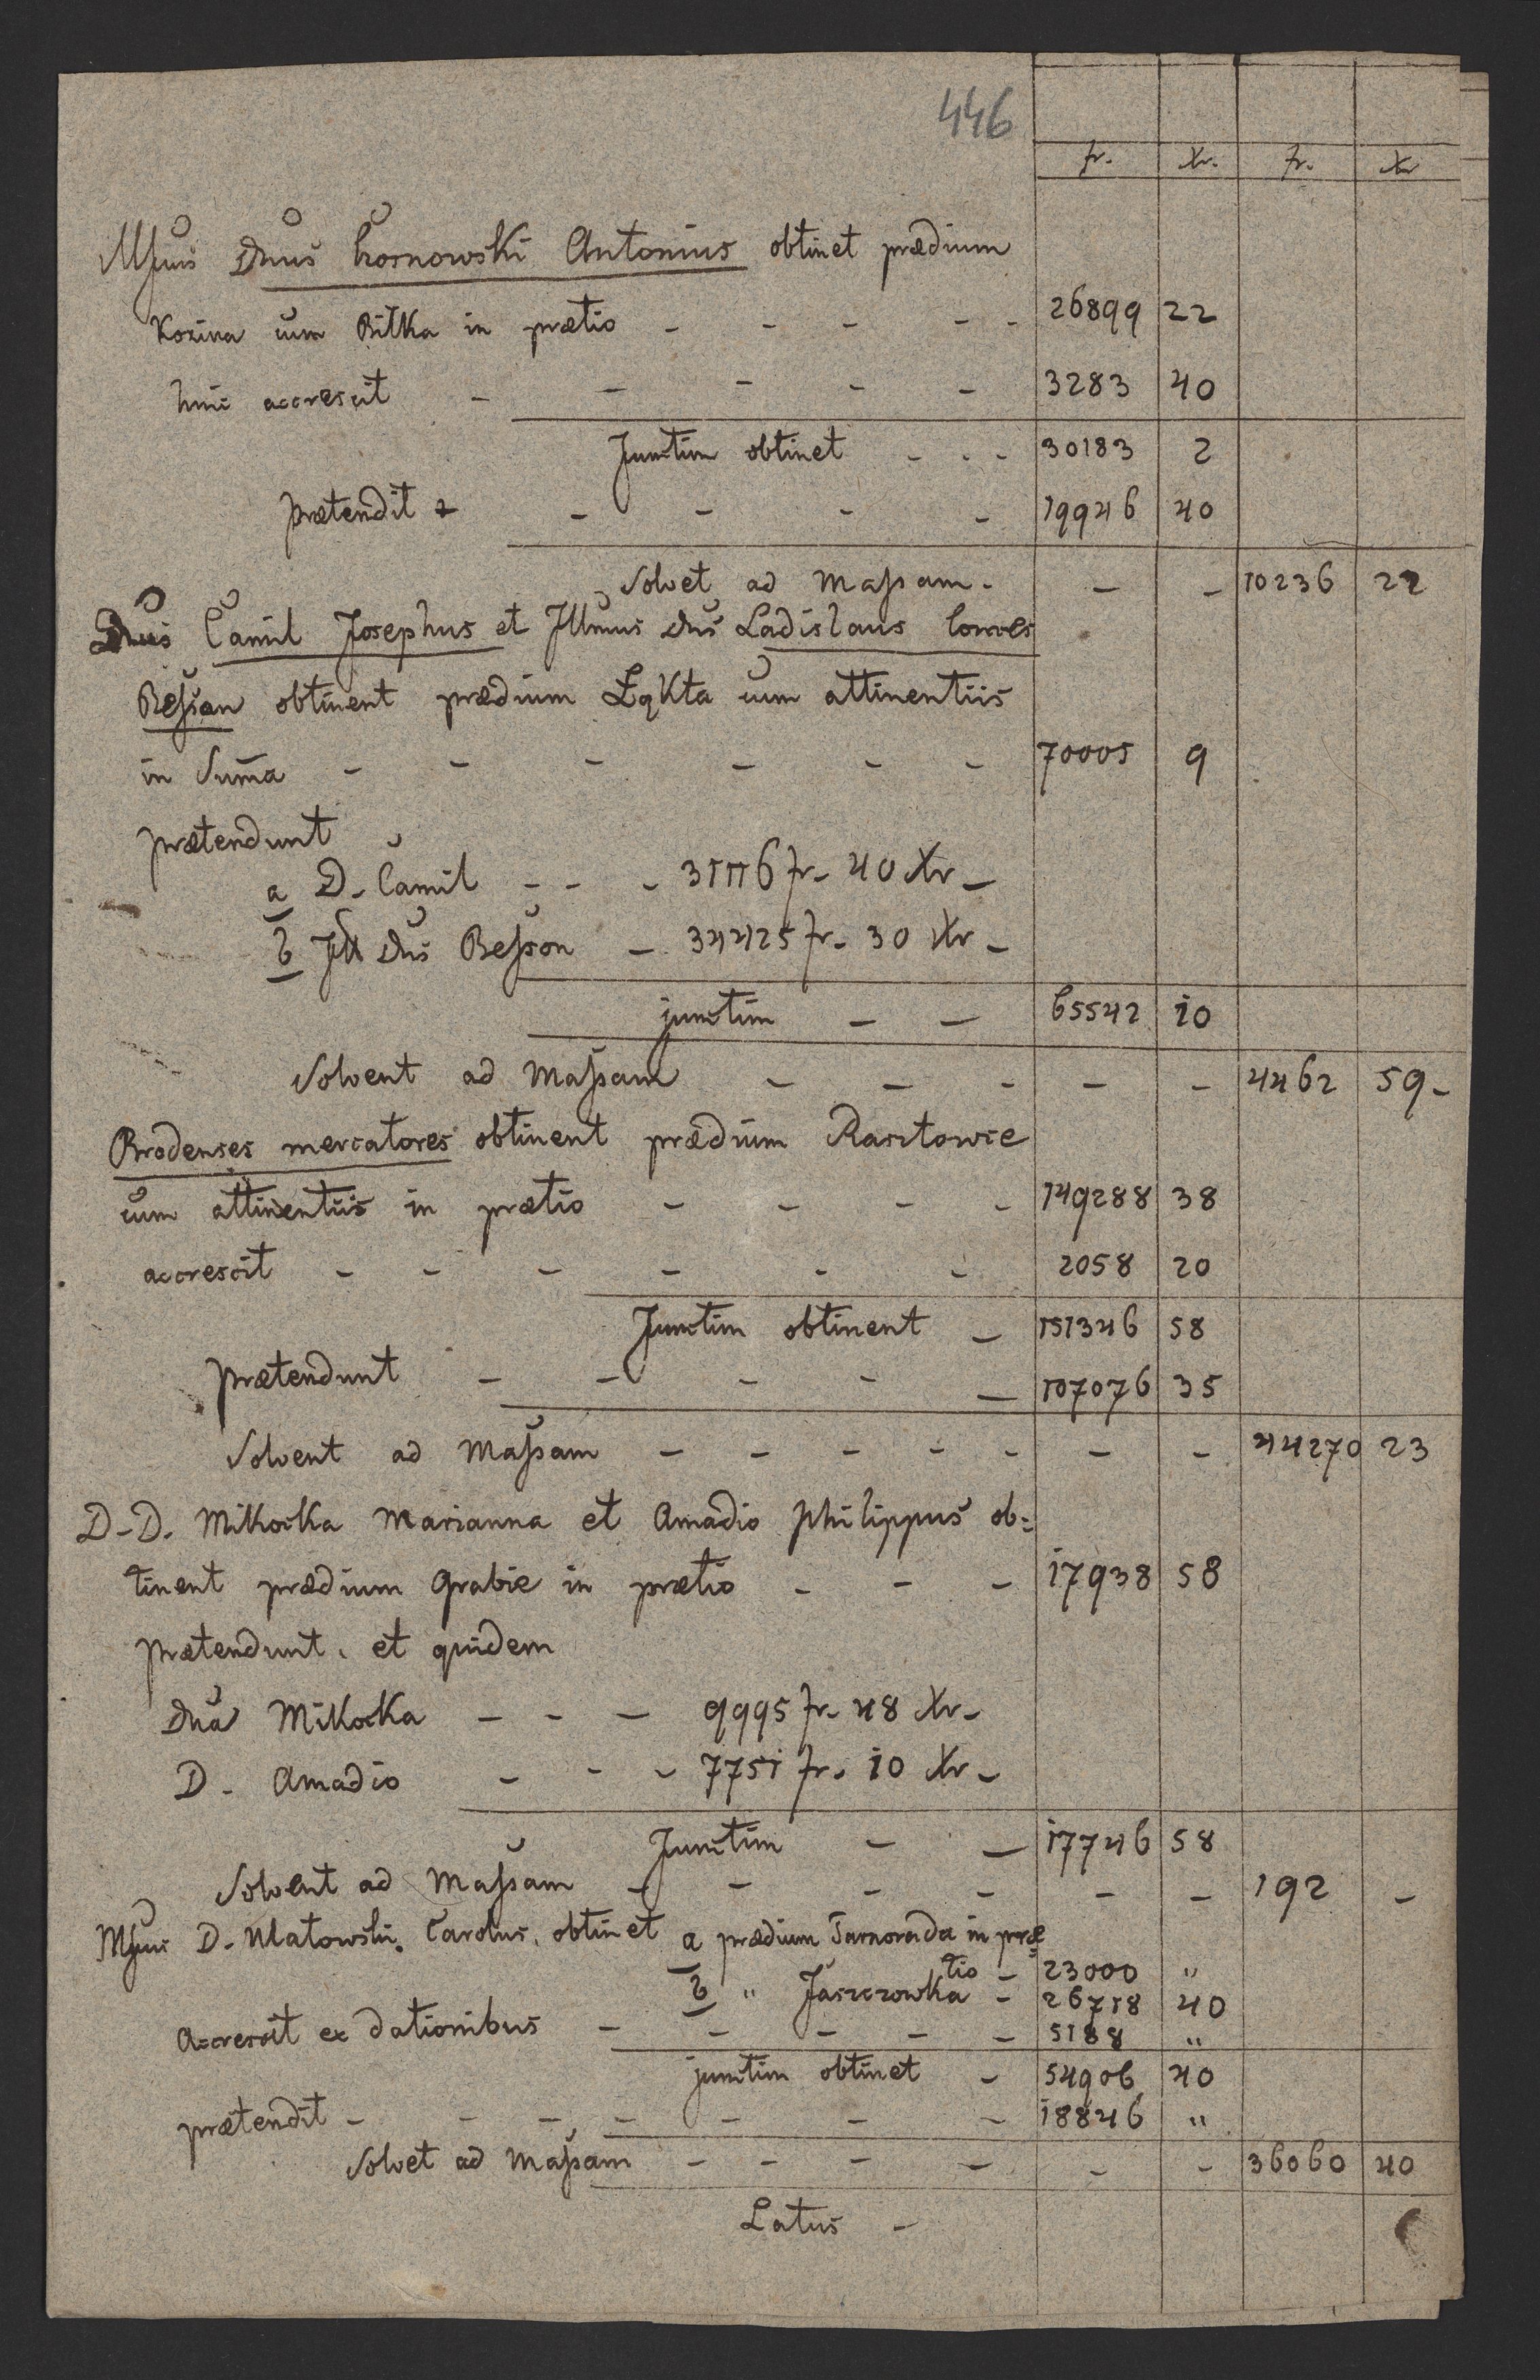 446
fr. Xr. fr. Xr
Mfcus Dnus Czosnowski Antonius obtinet prædium
Kozina cum Bitka in prætio - - - - - 26899 22
huic accrescit - - - - - 3283 40
Junctim obtinet - - - 30183 2
prætendit - - - - 19946 40
Solvet ad Massam - - - 10236 22
Dnus Camil Josephus et Illmus Dnus Ladislaus Comes
Besson obtinent prædium Łąkta cum attinentiis
in Suma - - - - - - 70005 9
prætendunt
a D. Camil - - - 31116 fr. 40 Xr -
b Ill Dnus Besson - 34425 fr. 30 Xr -
junctim - - 65542 10
Solvent ad Massam - - - - - 4462 59 -
Brodenses mercatores obtinent prædium Rasztowce
cum attinentiis in prætio - - - - 149288 38
accrescit - - - - - - 2058 20
Junctim obtinent - 151346 58
prætendunt - - - - - 107076 35
Solvent ad Massam - - - - - - - 44270 23
D. D. Mikocka Marianna et Amadio Philippus ob=
tinent prædium Grabie in prætio - - - 17938 58
prætendunt. et quidem
Dna Mikocka - - - 9995 fr. 48 Xr -
D. Amadio - - - 7751 fr. 10 Xr -
Junctim - - 17746 58
Solvent ad Massam - - - - - - 192 -
Mfcus D. Carolus. obtinet a prædium Tarnoruda in præ
tio - 23000 "
b " Jaszczowka - 26718 40
Accrescit ex dationibus - - - - - 5188 "
junctim obtinet - 54906 40
prætendit - - - - - - - 18846 "
Solvet ad Massam - - - - - - 36060 40
Latus -